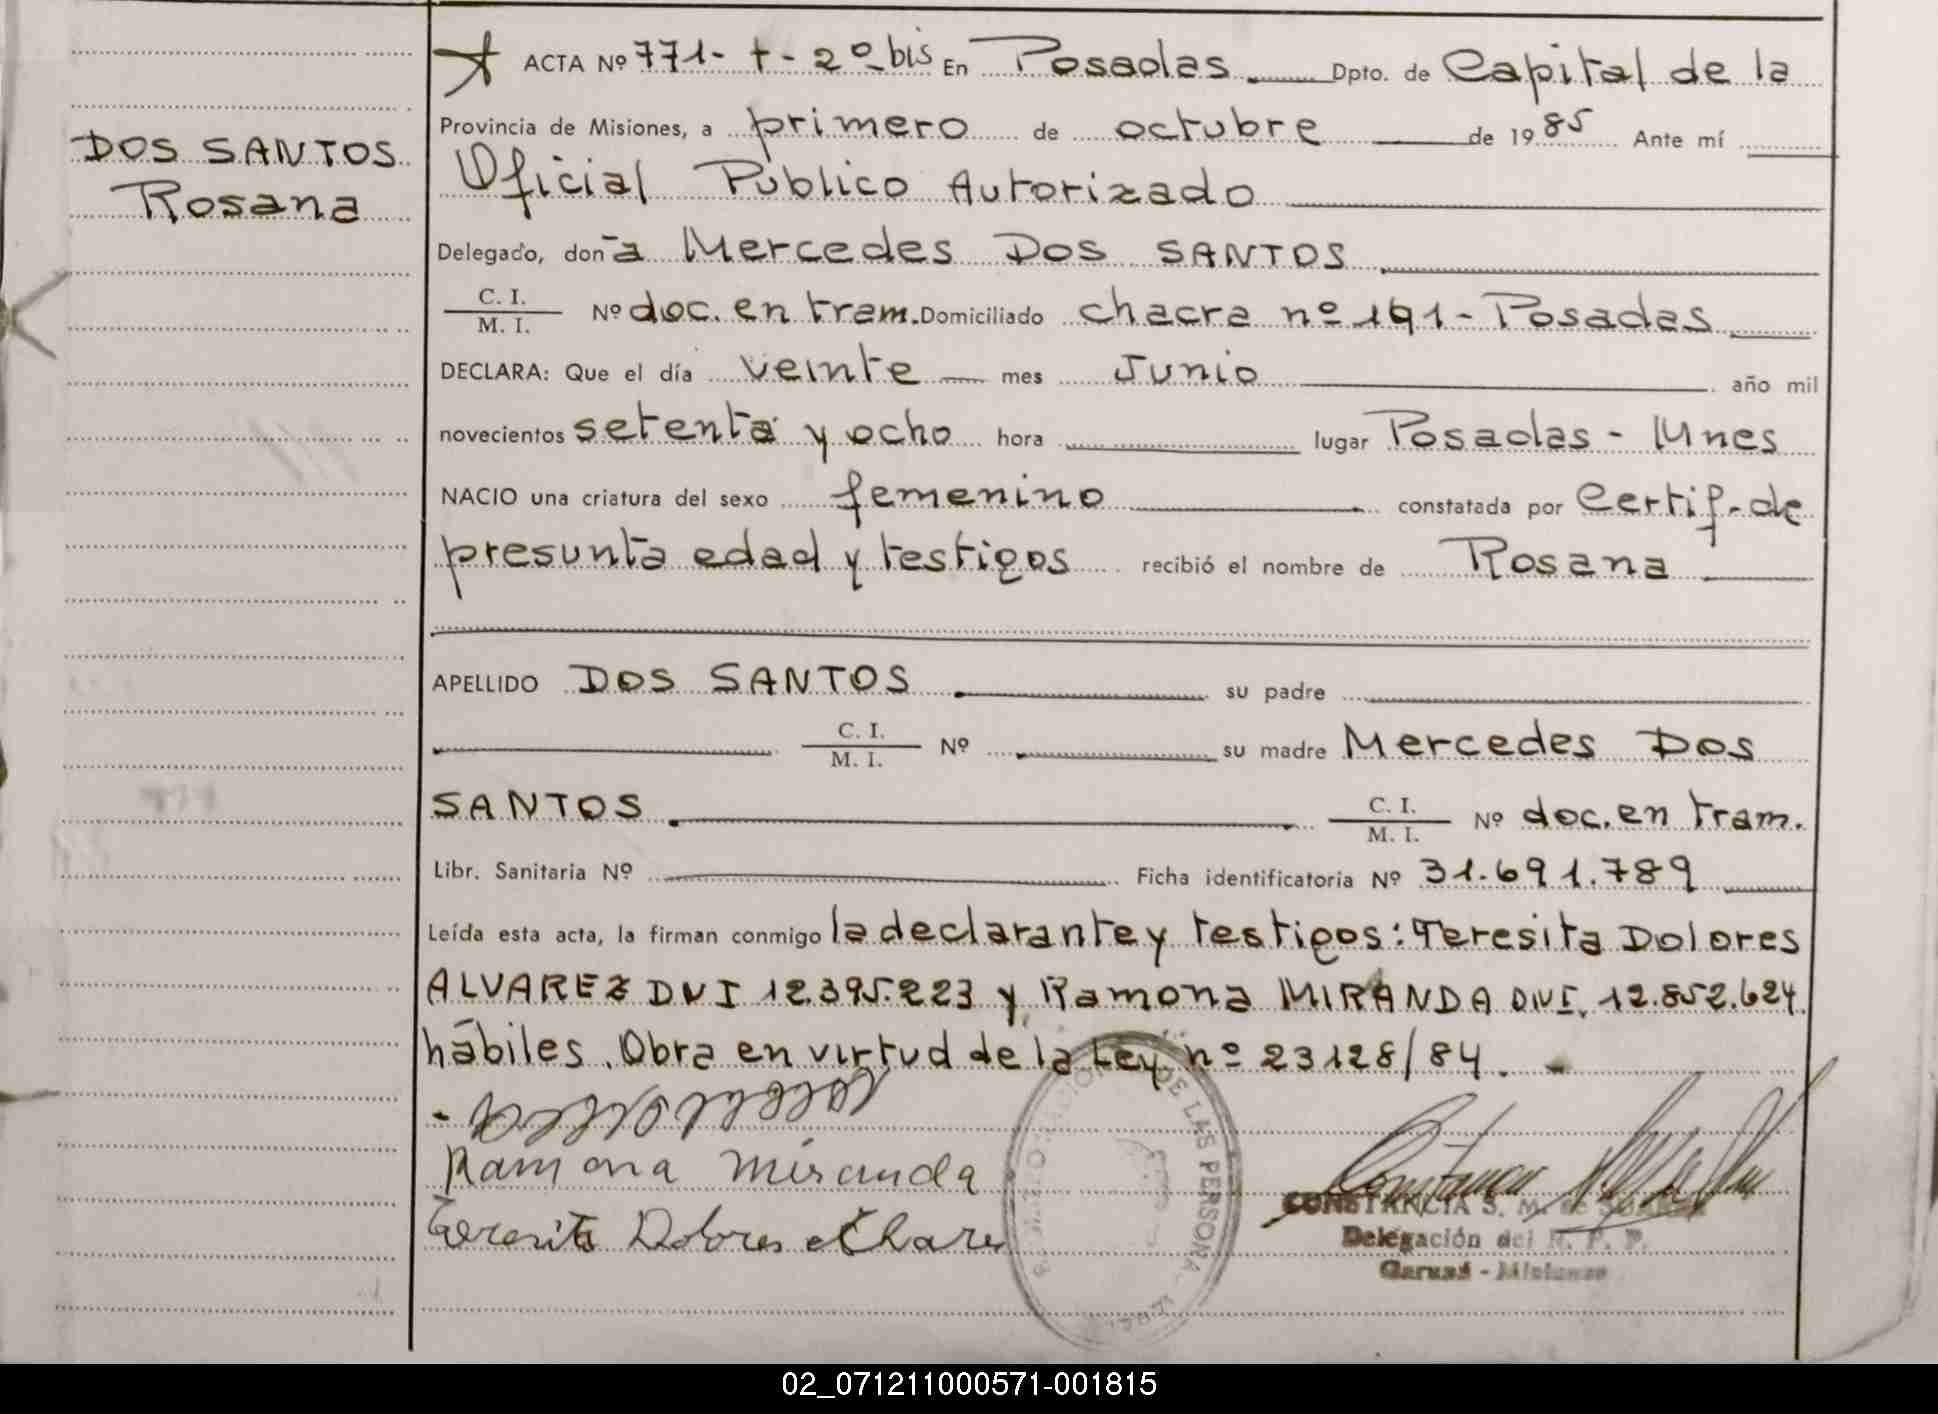 DOS SANTOS
Rosana
ACTA Nº 771- t - 2º bis En Posadas Dpto. de Capital de la
Provincia de Misiones, a primero de octubre de 1985 Ante mí
Oficial Público Autorizado
Delegado, doña Mercedes DOS SANTOS
C. I.
M. I. Nº doc. en tram. Domiciliado chacra nº 191 - Posadas
DECLARA: Que el día veinte mes Junio año mil
novecientos setenta y ocho hora lugar Posadas - Mnes
NACIO una criatura del sexo femenino constatada por Certif. de
presunta edad y testigos recibió el nombre de Rosana
APELLIDO DOS SANTOS su padre
C. I.
M. I. Nº su madre Mercedes DOS
SANTOS C. I.
M. I. Nº doc. en tram.
Libr. Sanitaria Nº Ficha identificatoria Nº 31.691.789
Leída esta acta, la firman conmigo la declarante y testigos: Teresita Dolores
ALVAREZ DNI 12.395.223 y Ramona MIRANDA DNI. 12.852.624.
hábiles. Obra en virtud de la Ley nº 23128/84.
Ramona Miranda
Teresita Dolores
DE LAS PERSONAS
CONSTANCIA S. M. de
Delegación del R. P. P.
Garuaá - Misiones
02_071211000571-001815